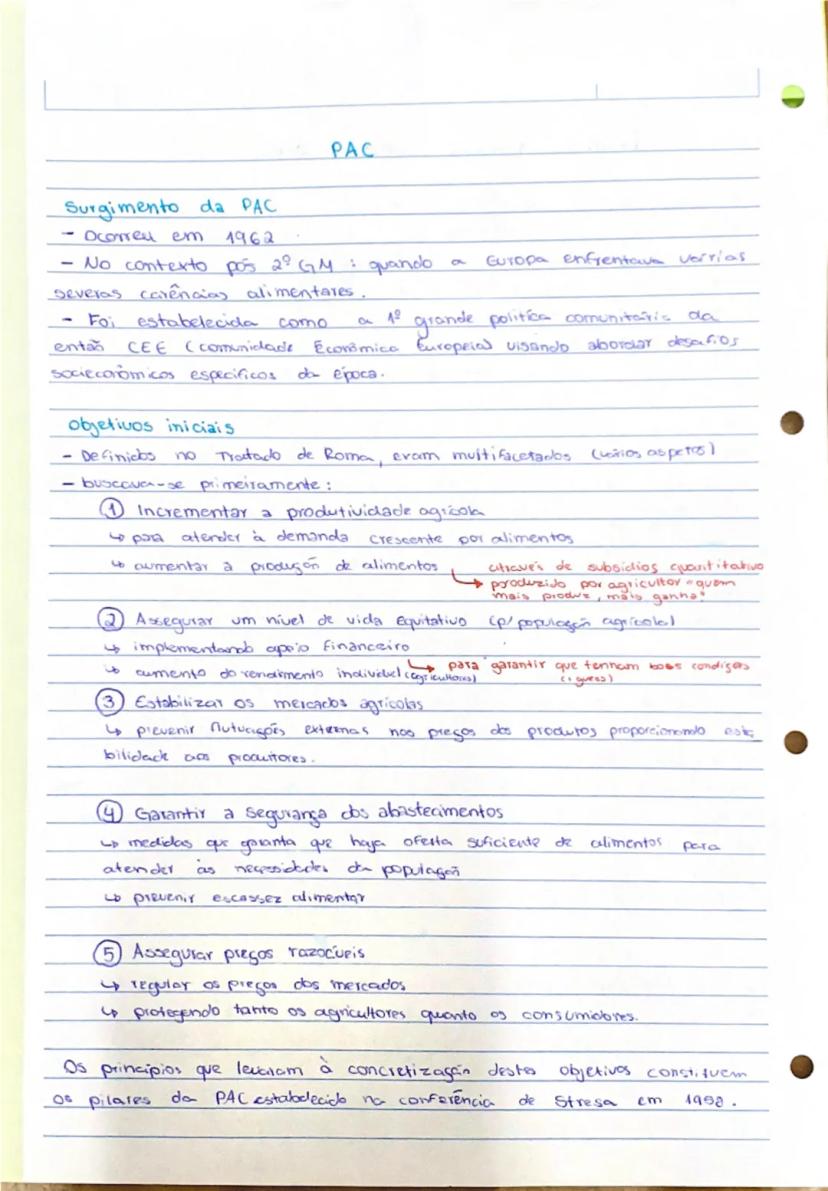 PAC
Surgimento da PAC
- Ocorreu em 1962
- No contexto pós 2º GM : quando a Europa enfrentava várrias
severas carências alimentares.
- Foi estabelecida como a 1º grande política comunitária da
então CEE (comunidade Económica Europeia) visando abordar desafios
socieconómicos especificos da época.
Objetivos iniciais
- Definidos no Tratado de Roma, eram multifacetados (vários aspetos)
- buscavam-se primeiramente :
① Incrementar a produtividade agrícola
↳ para atender à demanda crescente por alimentos
↳ aumentar a produção de alimentos
↳ através de subsídios quantitativo
produzido por agricultor "quem
mais produz, mais ganha"
② Assegurar um nível de vida Equitativo (p/ população agrícola)
↳ implementando apoio financeiro
↳ aumento do rendimento individual (agricultores)
↳ para garantir que tenham boas condições
③ Estabilizar os mercados agrícolas
↳ prevenir flutuações externas nos preços dos produtos proporcionando esta
bilidade aos produtores.
④ Garantir a segurança dos abastecimentos
↳ medidas que garanta que haja oferta suficiente de alimentos para
atender às necessidades da população
↳ prevenir escassez alimentar
⑤ Assegurar preços razoáveis
↳ regular os preços dos mercados
↳ protegendo tanto os agricultores quanto os consumidores.
Os princípios que levaram à concretização destes objetivos constituem
os pilares da PAC estabelecido na conferência de Stresa em 1958.